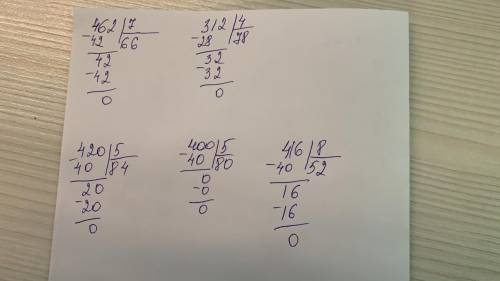 462 | 7
- 42 | 66
42
- 42
0
312 | 4
- 28 | 78
32
- 32
0
- 420 | 5
40 | 84
20
- 20
0
- 400 | 5
40 | 80
0
- 0
0
416 | 8
- 40 | 52
16
- 16
0